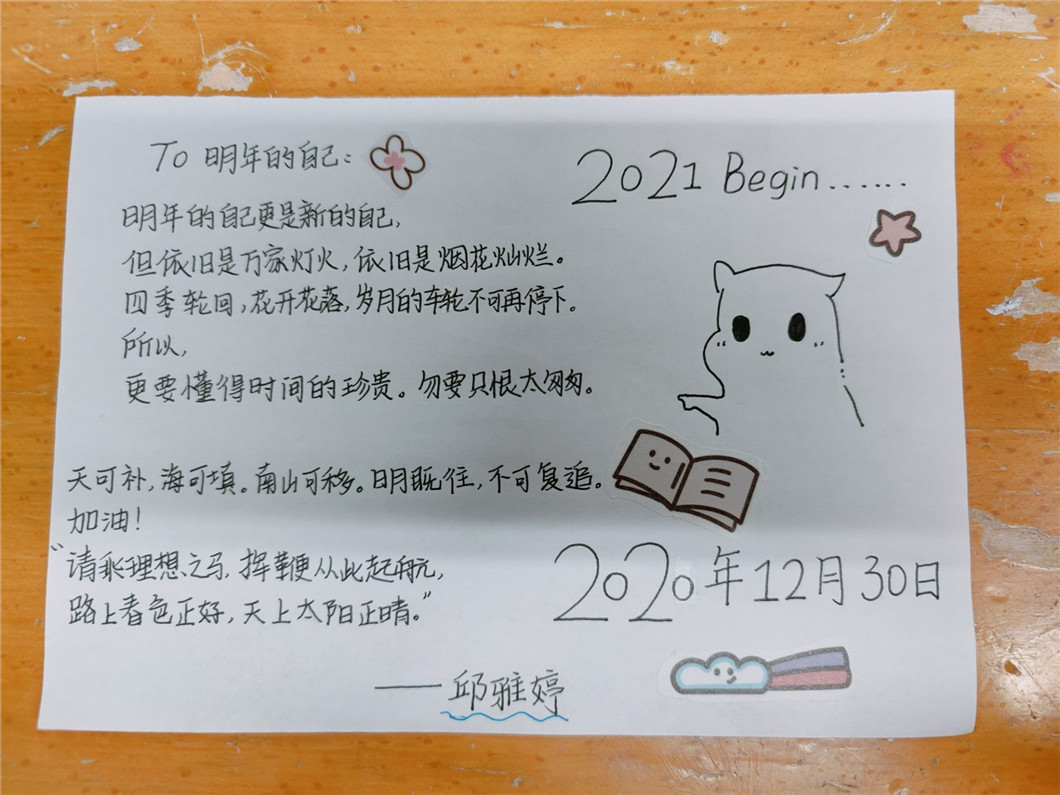 To 明年的自己：
2021 Begin......
明年的自己更是新的自己，
但依旧是万家灯火，依旧是烟花灿烂。
四季轮回，花开花落，岁月的车轮不可再停下。
所以，
更要懂得时间的珍贵。勿要只恨太匆匆。
天可补，海可填。南山可移。日月既往，不可复追。
加油！
“请乘理想之马，挥鞭从此起航，
路上春色正好，天上太阳正晴。”
2020年12月30日
——邱雅婷